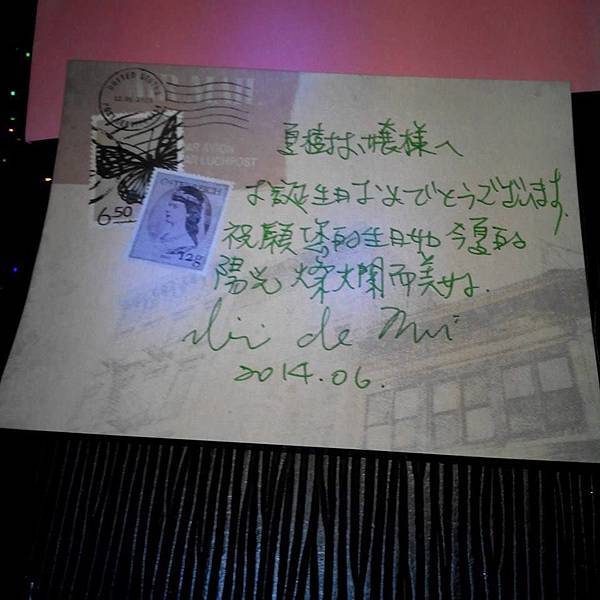 AR AVION
LUCHPOST
6.50
ÖSTERREICH
12g
夏樹お嬢様へ
お誕生日おめでとうございます.
祝願您的生日如今夏的
陽光燦爛而美好.
de
2014.06.